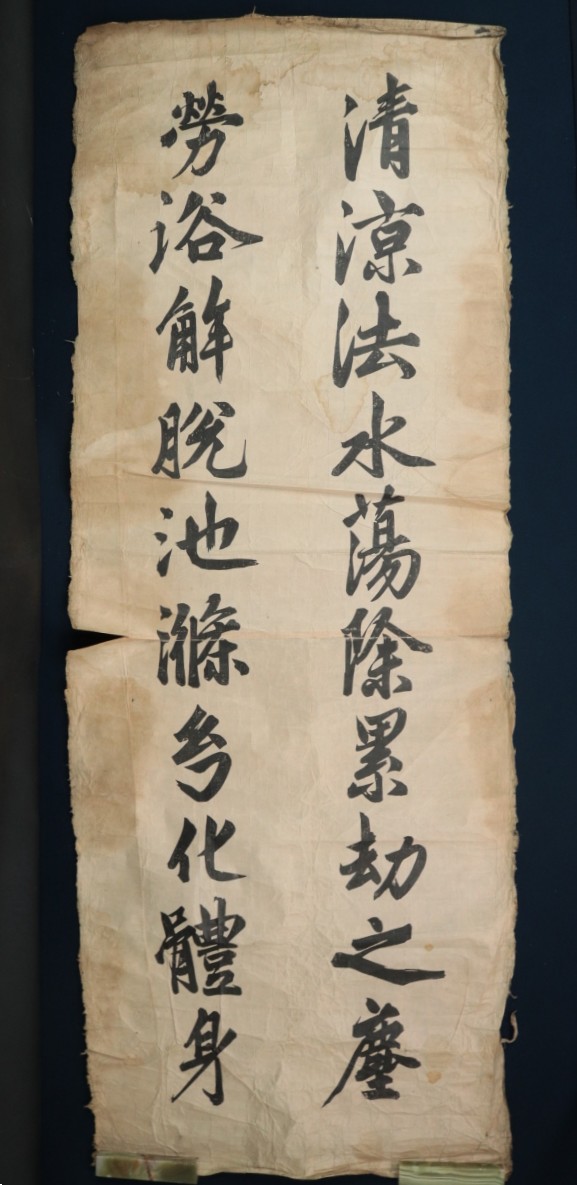 清涼法水蕩除累劫之塵
勞浴解脫池滌兮化體身